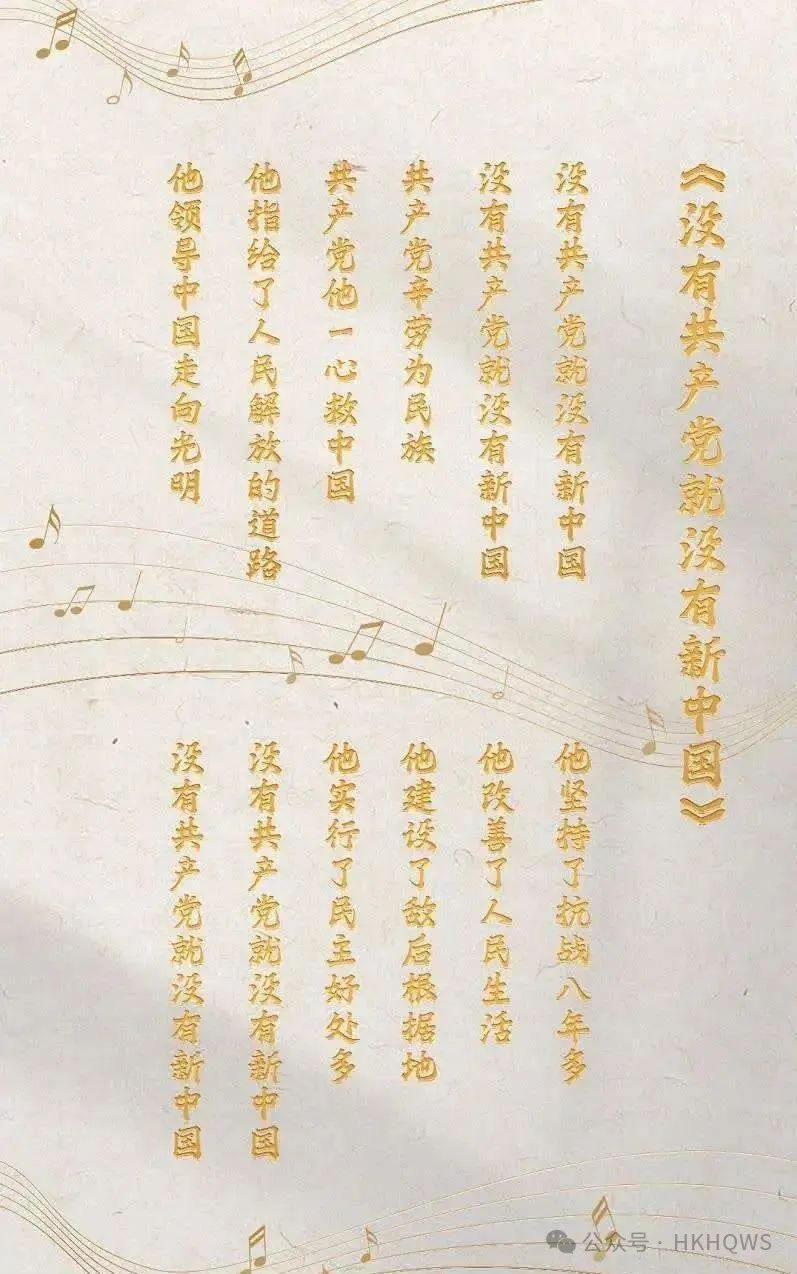 《没有共产党就没有新中国》
没有共产党就没有新中国
没有共产党就没有新中国
共产党辛劳为民族
共产党他一心救中国
他指给了人民解放的道路
他领导中国走向光明
他坚持了抗战八年多
他改善了人民生活
他建设了敌后根据地
他实行了民主好处多
没有共产党就没有新中国
没有共产党就没有新中国
公众号 · HKHQWS